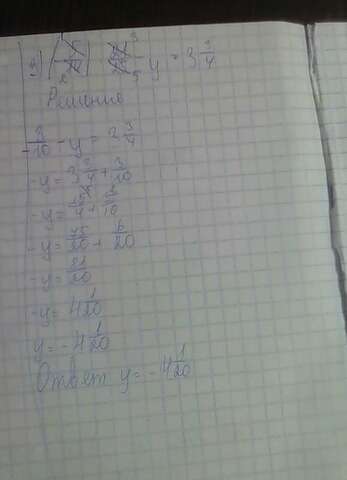 Решение
-3/10 - y = 2 3/4
-y = 3 3/4 + 3/10
-y = 15/4 + 3/10
-y = 75/20 + 6/20
-y = 81/20
-y = 4 1/20
y = -4 1/20
Ответ y = -4 1/20